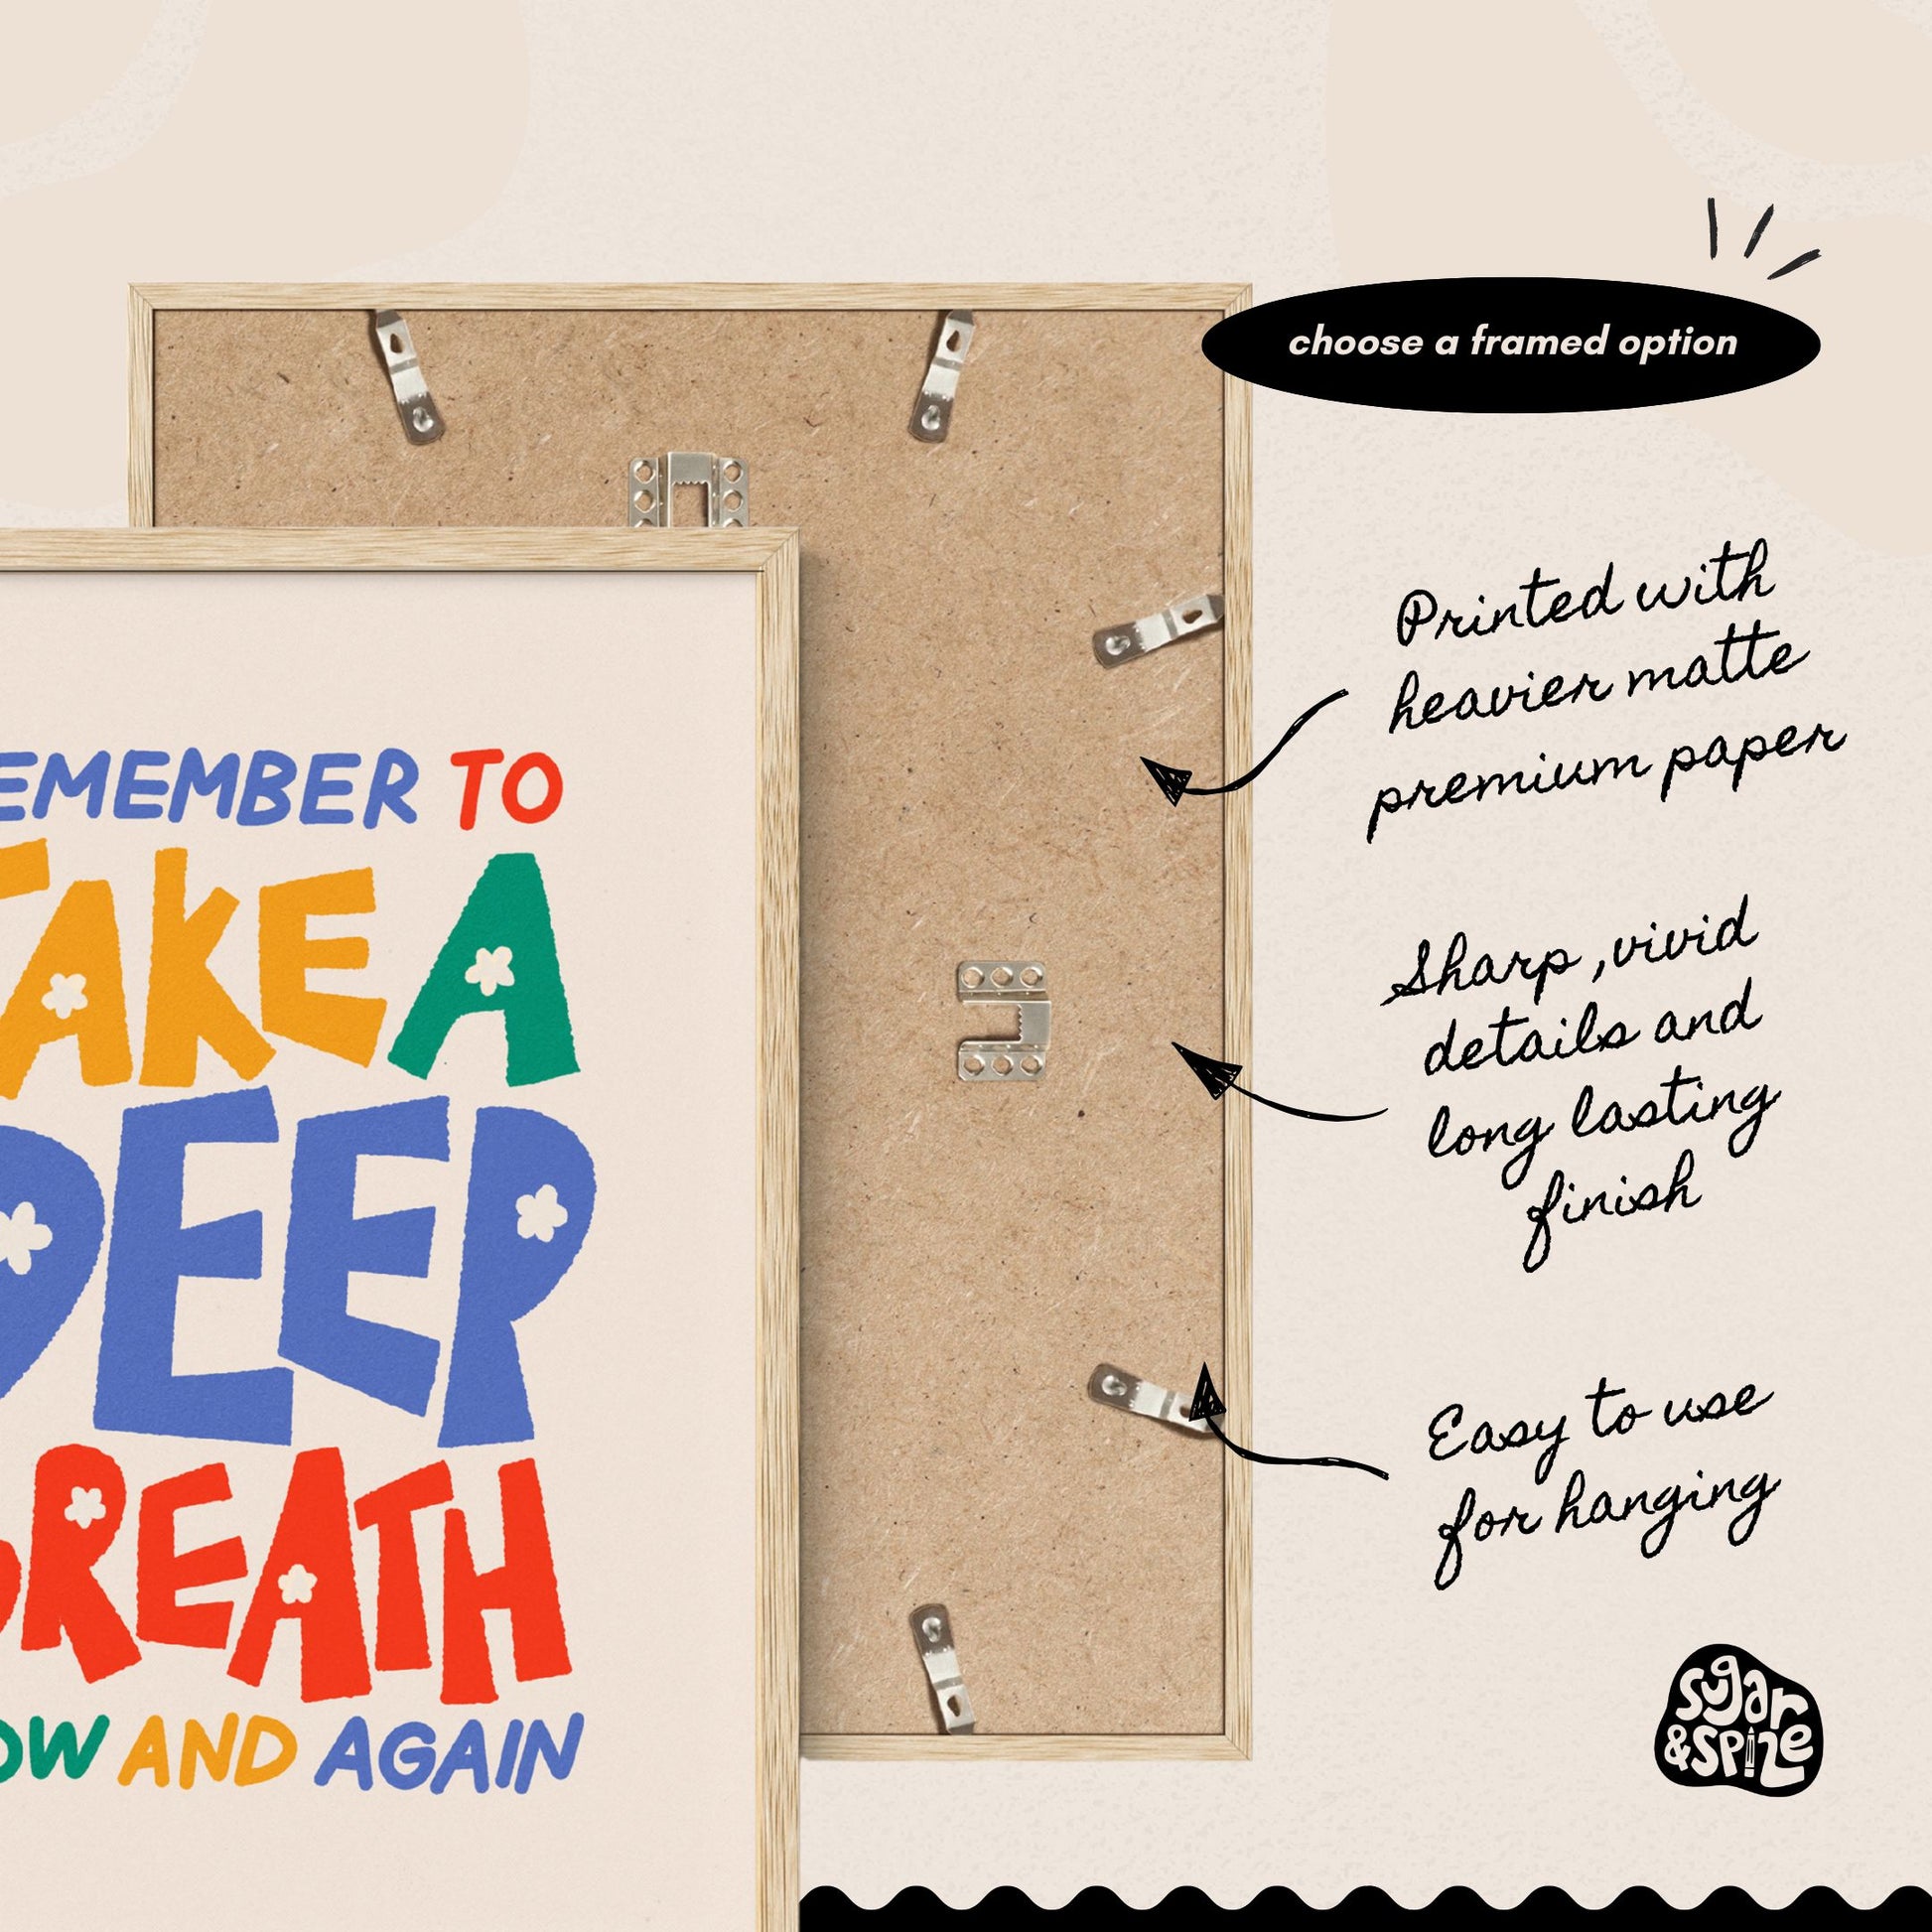 choose a framed option
Printed with
heavier matte
premium paper
Sharp ,vivid
details and
long lasting
finish
Easy to use
for hanging
EMEMBER TO
TAKE A
DEEP
BREATH
OW AND AGAIN
sugar
&SPiZE